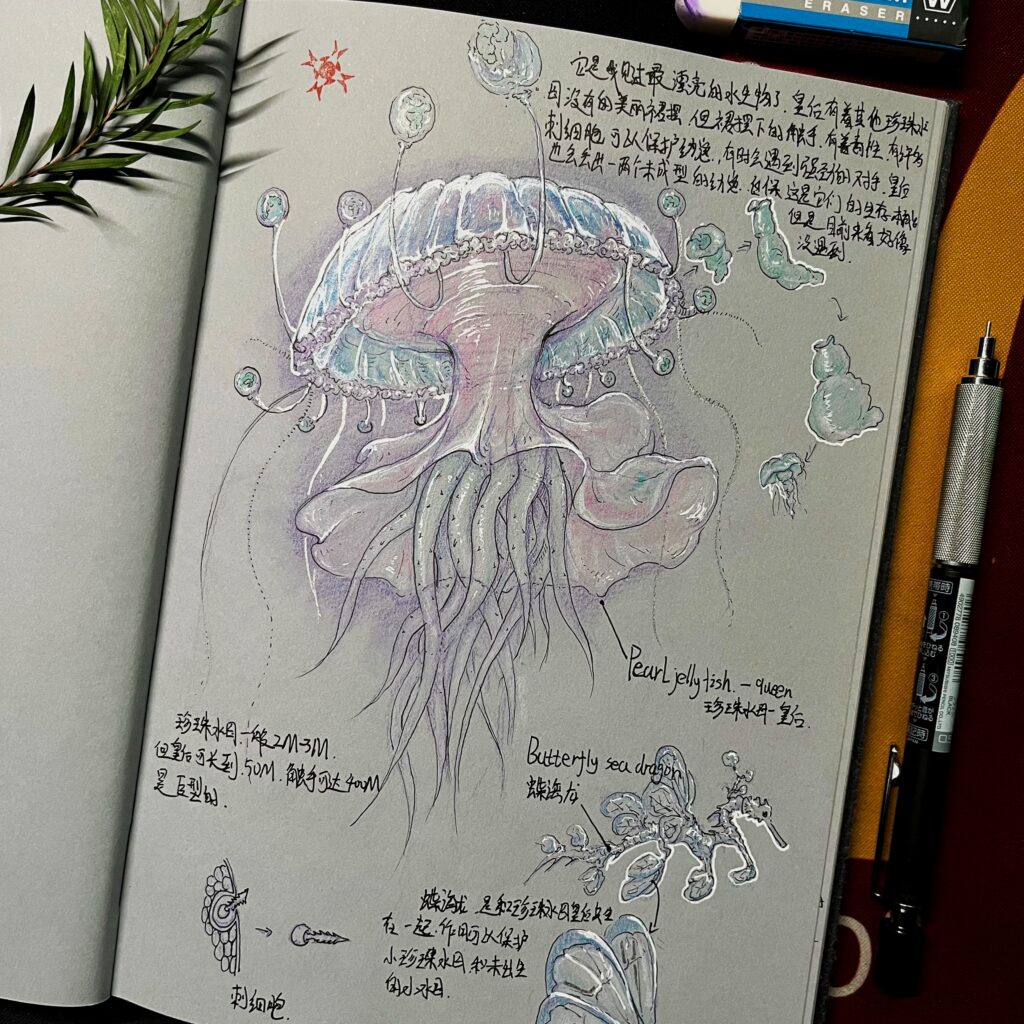 它是我见过最漂亮的水生物了.皇后有着其他珍珠水
母没有的美丽裙摆.但裙摆下的触手.有着毒性.有许多
刺细胞.可以保护幼崽.有时会遇到强劲的对手.皇后
也会会出一两个未成型的幼崽.自保.这是它们的生存本能
但是目前来看好像
没遇到.
Pearl jelly fish. - queen
珍珠水母-皇后.
珍珠水母一般2M-3M.
但皇后可长到.50M.触手可达400M
是巨型的.
Butterfly sea dragon
蝶海龙
蝶海龙.是和珍珠水母皇后共生
在一起.作用可以保护
小珍珠水母和未出生
的小水母.
刺细胞.
ERASER
W